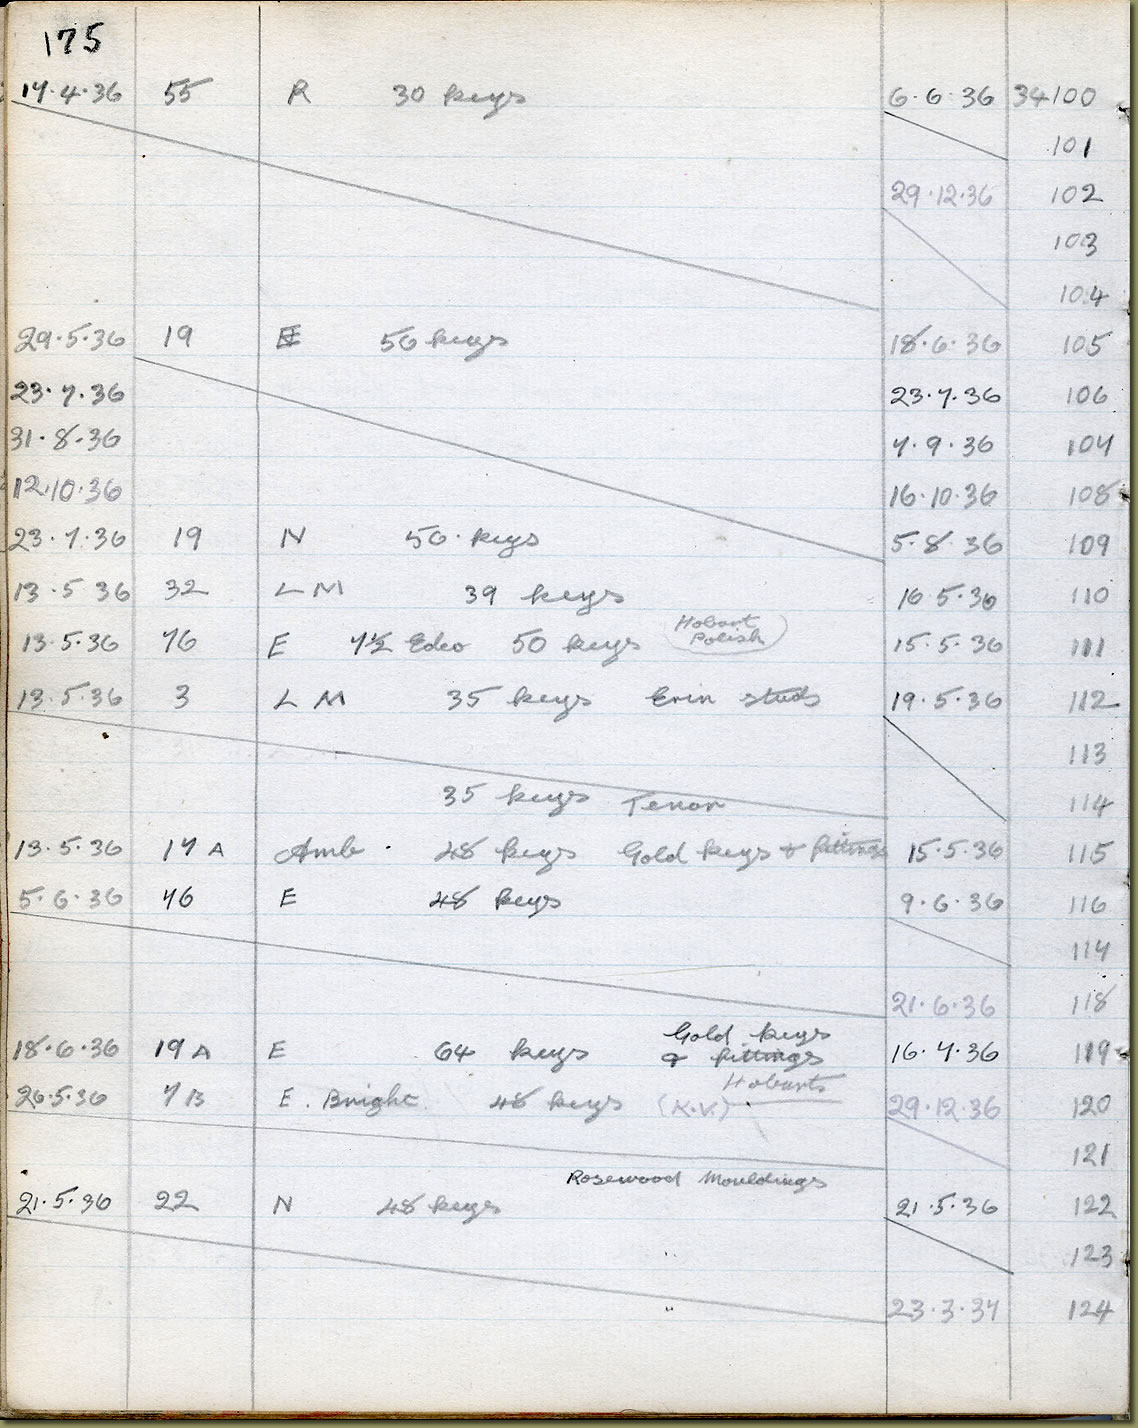 175
17.4.36 55 R 30 keys 6.6.36 34100
101
29.12.36 102
103
104
29.5.36 19 E 56 keys 18.6.36 105
23.7.36 23.7.36 106
31.8.36 7.9.36 107
12.10.36 16.10.36 108
23.7.36 19 N 56 keys 5.8.36 109
13.5.36 32 L M 39 keys 16.5.36 110
13.5.36 76 E 7½ Edeo 50 keys (Hobart Polish) 15.5.36 111
13.5.36 3 L M 35 keys Erin studs 19.5.36 112
113
35 keys Tenor 114
13.5.36 17A Amb. 48 keys Gold keys & fittings 15.5.36 115
5.6.36 76 E 48 keys 9.6.36 116
117
21.6.36 118
Gold keys
18.6.36 19A E 64 keys & fittings 16.7.36 119
Hobarts
26.5.36 7B E. Bright. 48 keys (K.V.) 29.12.36 120
121
Rosewood Mouldings
21.5.36 22 N 48 keys 21.5.36 122
" 123
" 23.3.37 124